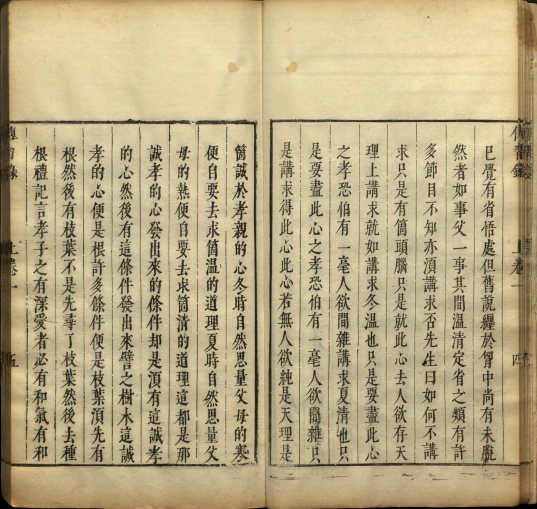 已覺有省悟處但舊說纏於胷中尚有未脫
然者如事父一事其間温凊定省之類有許
多節目不知亦湏講求否先生曰如何不講
求只是有箇頭腦只是就此心去人欲存天
理上講求就如講求冬温也只是要盡此心
之孝恐怕有一毫人欲間雜講求夏凊也只
是要盡此心之孝恐怕有一毫人欲間雜只
是講求得此心此心若無人欲純是天理是
傳習錄 上卷一 四
箇誠於孝親的心冬時自然思量父母的寒
便自要去求箇温的道理夏時自然思量父
母的熱便自要去求箇清的道理這都是那
誠孝的心發出來的條件却是湏有這誠孝
的心然後有這條件發出來譬之樹木這誠
孝的心便是根許多條件便是枝葉湏先有
根然後有枝葉不是先尋了枝葉然後去種
根禮記言孝子之有深愛者必有和氣有和
傳習錄 上卷一 五